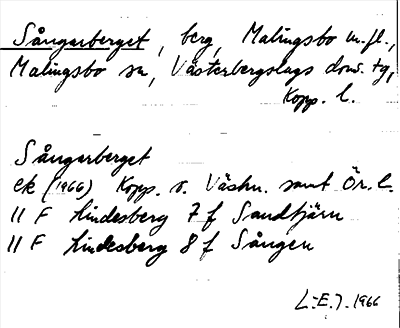 Sångarberget, berg, Malingsbo m.fl.,
Malingsbo sn, Västerbergslags doms. tg,
Kopp. l.
Sångarberget
ek (1966) Kopp. o. Västm. samt Ör. l.
11 F Lindesberg 7 f Sandtjärn
11 F Lindesberg 8 f Sången
L-E. J. 1966